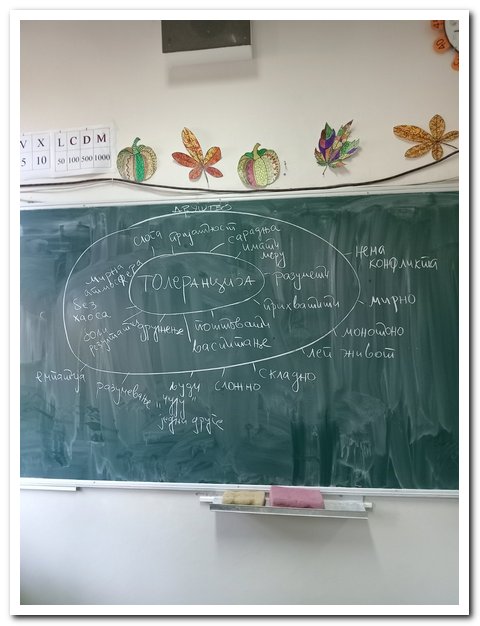 V X L C D M
5 10 50 100 500 1000
ДРУШТВО
слога
пријатност
сарадња
имати
меру
мирна
атмосфера
ТОЛЕРАНЦИЈА
разумети
нема
конфликта
без
хаоса
прихватити
мирно
бољи
резултати
дружење
поштовати
васпитање
монотоно
леп живот
емпатија
разумевање
људи
сложно
складно
"чују"
једни друге